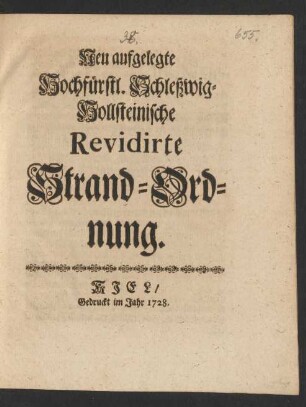 38.
655.
Neu aufgelegte
Hochfürstl. Schleßwig-
Hollsteinische
Revidirte
Strand-Ord-
nung.
KIEL/
Gedruckt im Jahr 1728.